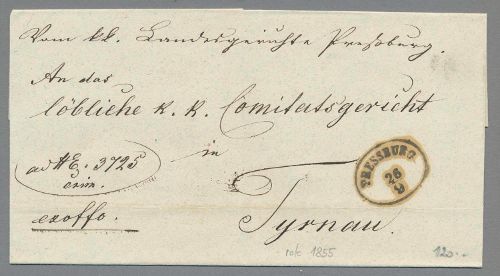 Vom k.k. Landesgerichte Preßburg.
An das
löbliche k. k. Comitatsgericht
in
ad #E. 3725
crim.
exoffo.
Tyrnau.
PRESSBURG
26
9
1855
120.-